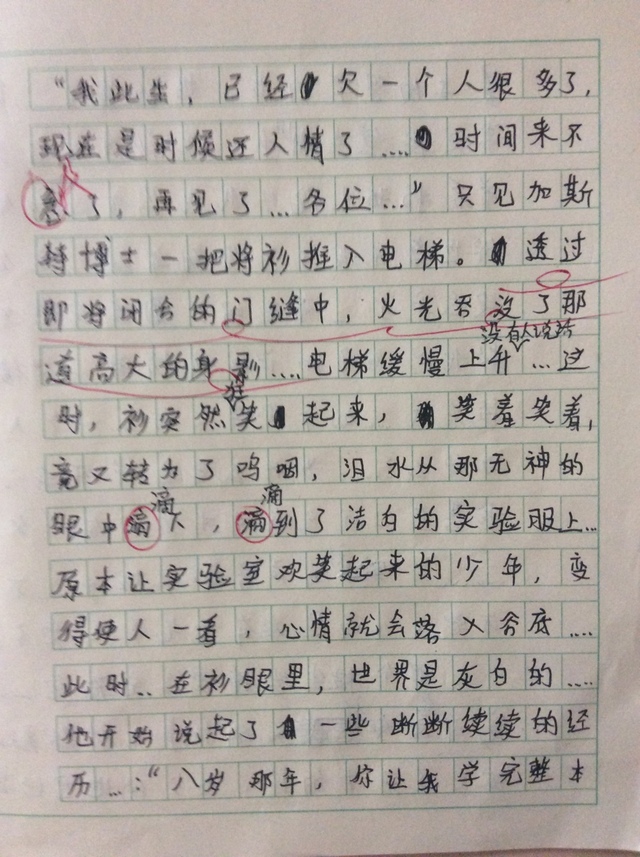 “我此生，已经欠一个人很多了，
现在是时候还人情了....时间来不
了，再见了...各位...”只见加斯
特博士一把将衫推入电梯。透过
即将闭合的门缝中，火光吞没了那
没有人说话
道高大的身影....电梯缓慢上升...过
时，衫突然狂笑起来，笑着笑着，
竟又转为了呜咽，泪水从那无神的
滴 滴
眼中滴下，滴到了洁白的实验服上...
原本让实验室欢笑起来的少年，变
得使人一看，心情就会落入谷底....
此时..在衫眼里，世界是灰白的....
他开始说起了一些断断续续的经
历...:“八岁那年，你让我学完整本